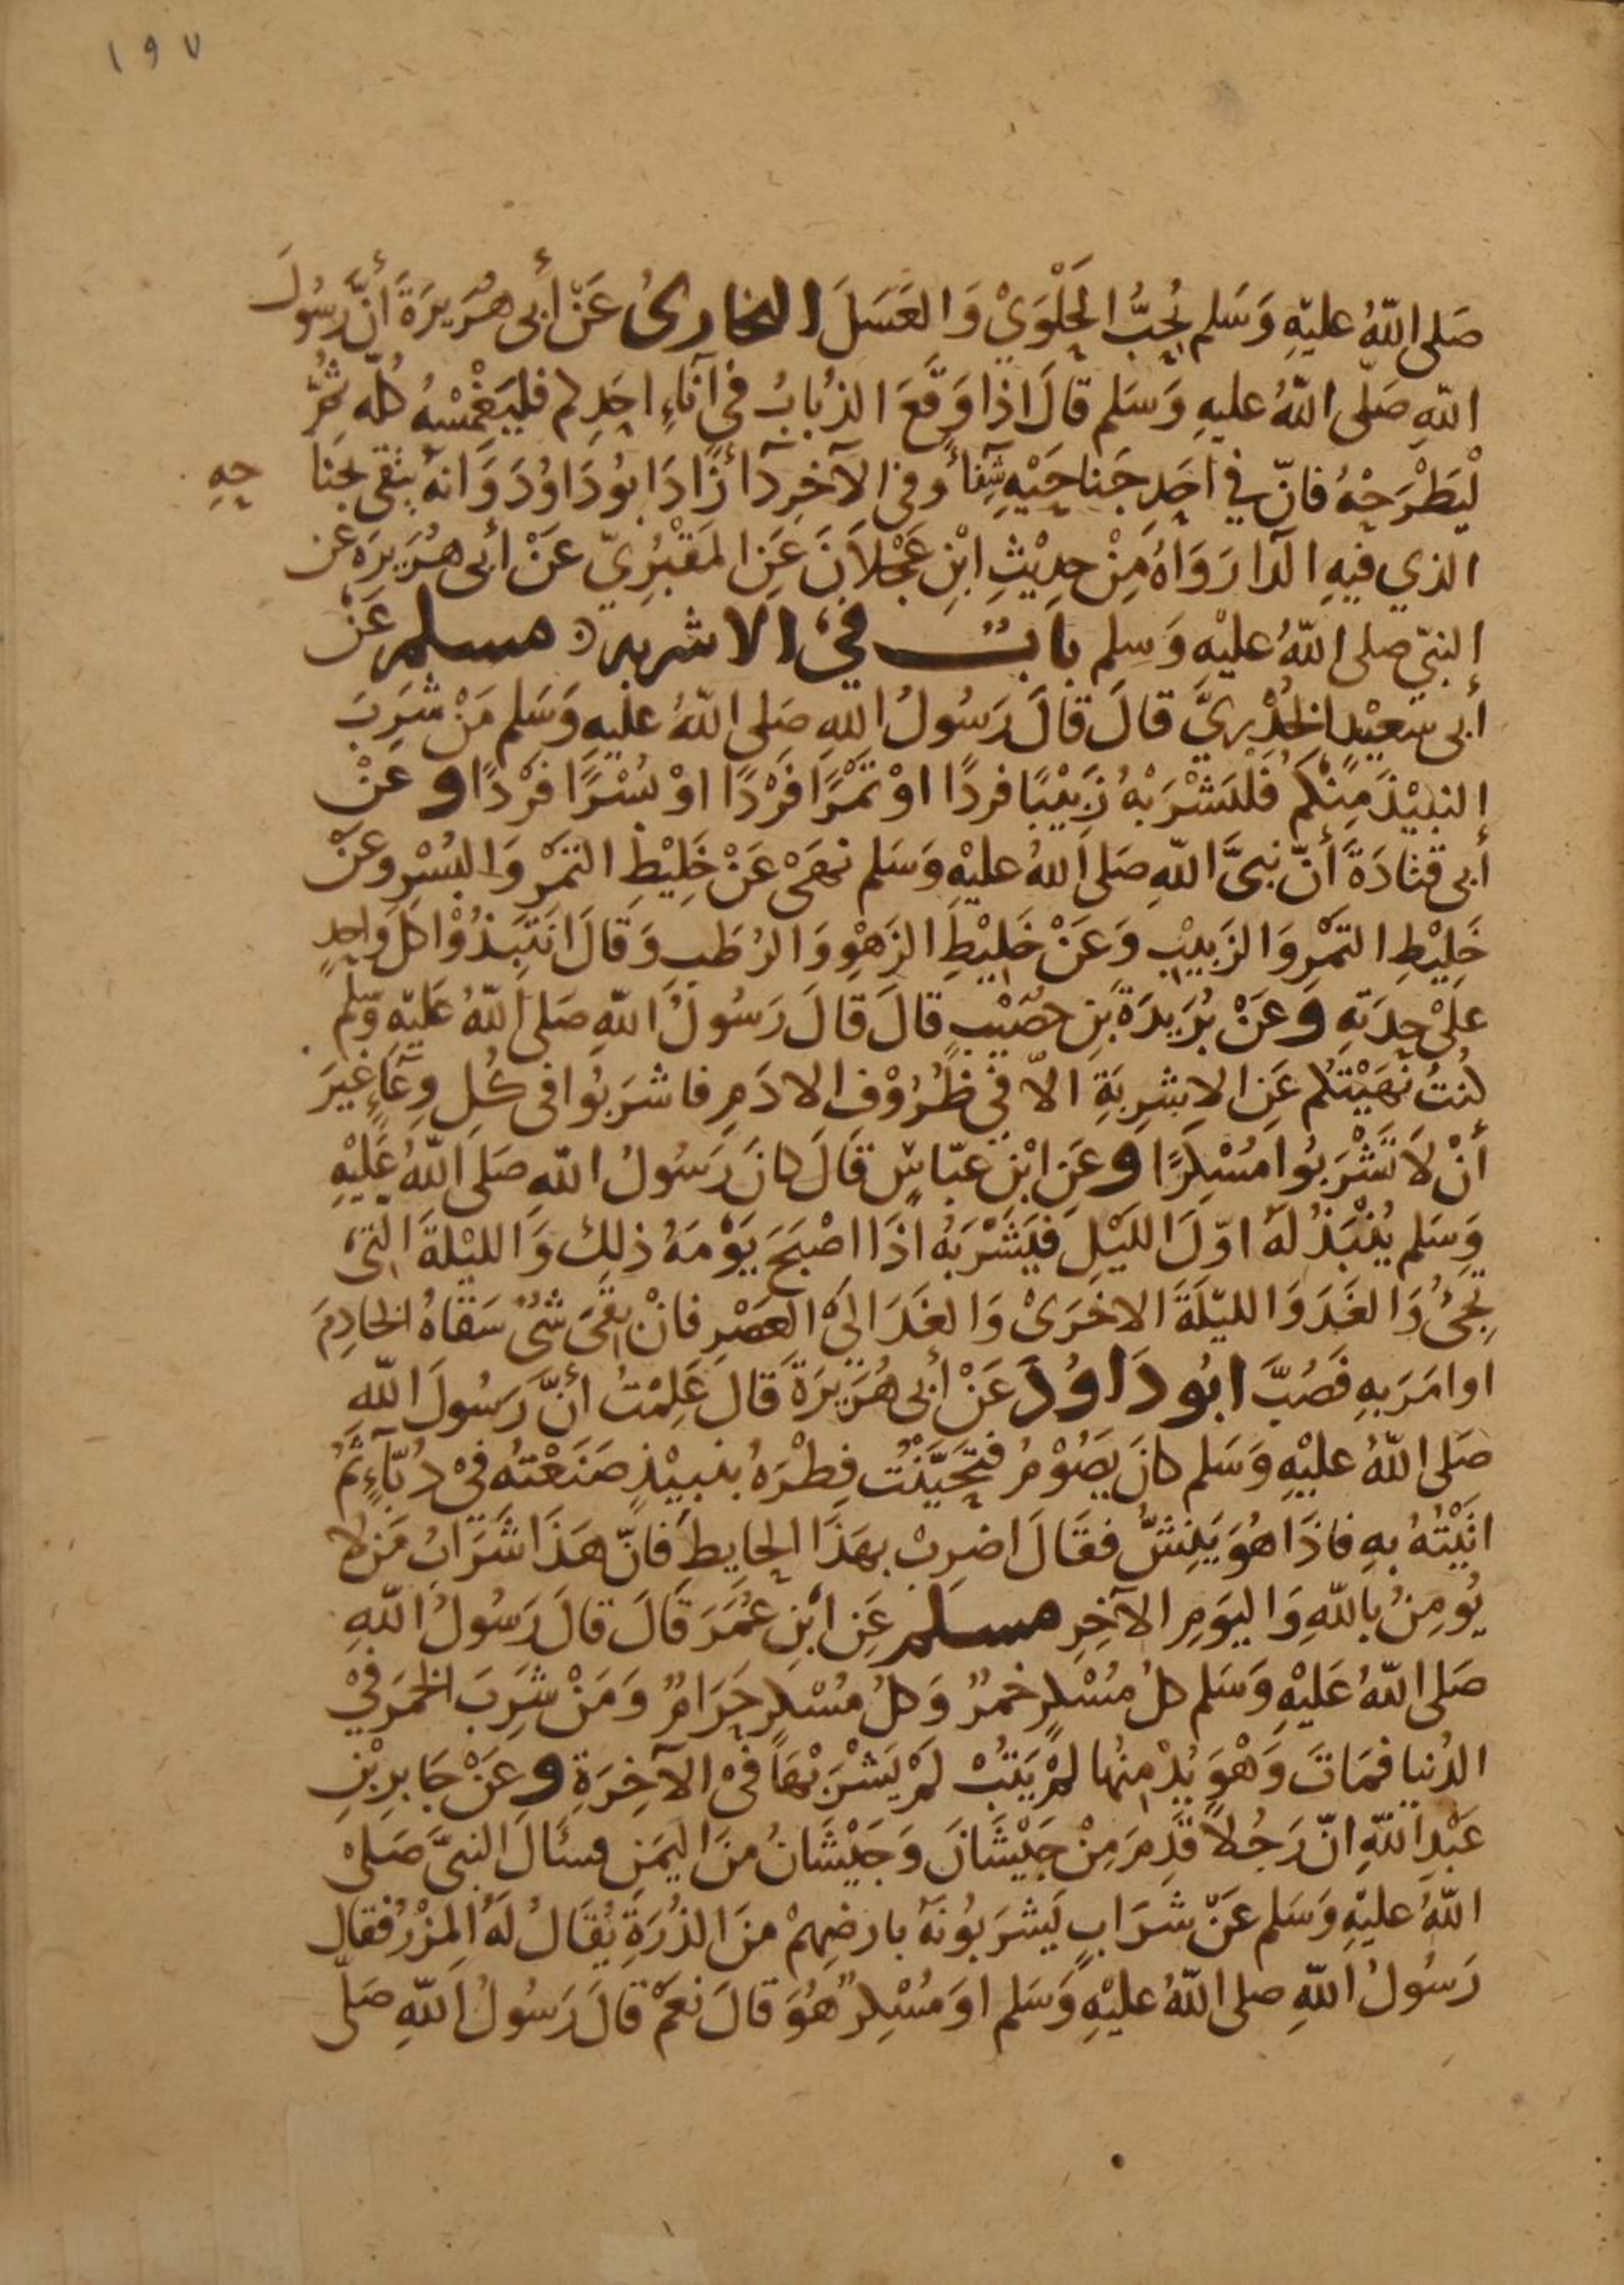 ١٩٧
صَلى اللّهُ عليْهِ وَسَلم يُحِبُّ الحَلْوَىْ وَالعَسَلَ البخارىُ عَنْ أبى هُرَيرَةَ أنَّ رَسُولَ
اللّهِ صَلّى اللّهُ عليهِ وَسَلم قالَ اذا وَقَعَ الذُبابُ في آنَاءِ احَدِكم فليَغْمْسْهُ كُلّه ثُمَّ
لْيَطْرَحْهُ فانّ في احَدِ جَناحَيْهِ شِفَاءً وفي الآخرِ دَآءً زَادَ ابُو دَاوُدَ وَانهُ يتقى بجنَا حِهِ
الذي فيهِ الدّآ رَوَاهُ مِنْ حدِيْثِ ابْنِ عَجْلاَنَ عَنِ المَقْبُرِيّ عَنْ أبى هُرَيرَه عن
النبيّ صلى اللّهُ عليْهِ وَسلم بابٌ في الاشربه مسلم عَنْ
أبى سَعِيْدٍ الخُدْرِيَّ قالَ قالَ رَسُولُ اللهِ صَلى اللّهُ عليهِ وَسَلم مَنْ شَرِبَ
النبيْذَ مِنْكم فَلْيَشْرَبْهُ زَبيْبًا فردًا اوْ تَمْرًا فَرْدًا اوْ بُسْرًا فَرْدًا و عَنْ
أبى قتادَةَ أنّ نبىَّ اللّهِ صَلى اللهُ عليْهِ وَسَلم نهَىْ عَنْ خَلِيْطِ التمْرِ وَالبُسْرِ وعَنْ
خَلِيْطِ التمْرِ وَالزَبيْبِ وَعَنْ خَلِيْطِ الزَهْوِ وَالرُطَبِ وَقالَ انتَبَذُوْا كلَ وَاحدٍ
علىْ حِدَتهِ وَعَنْ بُرَيدَةَ بْنِ حُصَيْبٍ قالَ قالَ رَسُولُ اللّهِ صَلى اللّهُ عَليْهِ وَسَّلم
كنتُ نَهَيْتكم عَنِ الاشرِبَةِ الاّ في ظُرُوْفِ الادَمِ فاشرَبُوا فى كُلِ وِعَآءٍ غيْرَ
أنْ لاَ تَشْرَبُوا مُسْكرًا و عَنِ ابْنِ عبّاسٍ قَالَ كانَ رَسُولُ اللّهِ صَلى اللّهُ عَليْهِ
وَسَلم يُنْبَذُ لهُ اوّلَ اللَيْلِ فيَشْرَبُه اذَا اصْبَحَ يَوْمَهُ ذلِكَ وَالليْلةَ التىْ
تجِىُٔ وَالغَدَ وَالليْلَةَ الاخْرَىْ وَالغَدَ الىَ العَصْرِ فانْ بقىَ شىٌ سَقاهُ الخادِمَ
اوامَرَ بهِ فَصُبَّ ابُو دَاوُدَ عَنْ أبى هُرَيرَةَ قالَ عَلِمْتُ أنَّ رَسُولَ اللّهِ
صَلى اللّهُ عليْهِ وَسَلم كانَ يَصُوْمُ فتَحَيَّنْتُ فِطْرَهُ بنبيْذٍ صَنَعْتهُ فىْ دُبّآءٍ ثمَّ
اتَيْتهُ بهِ فاذَا هُوَ يَنِشُّ فقَالَ اضرِبْ بهَذَا الحايطِ فَانّ هَذَا شَرَابُ مَنْ لا
يُومِنُ باللّهِ وَاليَومِ الآخِرِ مسلم عَنِ ابْنِ عُمَرَ قالَ قالَ رَسُولُ اللّهِ
صَلى اللّهُ عَليْهِ وَسَلم كلُ مُسْكرٍ خمرٌ وَكلُ مُسْكرٍ حَرَامٌ وَمَنْ شَرِبَ الخمرَ فيْ
الدُنيا فمَاتَ وَهْوَ يُدْمِنُها لمْ يَتُبْ لمْ يَشْرَبْهَا فىْ الآخِرَةِ و عَنْ جَابرِ بْنِ
عَبْدِ اللّهِ انّ رَجُلاً قَدِمَ مِنْ جَيْشَانَ وَجَيْشَانُ منَ اليَمَنِ فسَئالَ النبىَّ صَلىْ
اللّهُ عليْهِ وَسَلم عَنْ شرَابٍ يَشْرَبُونَهُ بارضِهِمْ منَ الذُرَةِ يُقَالُ لهُ المِزْرُ فقال
رَسُولُ اللّهِ صلى اللّهُ عليْهِ وَسَلم اوَ مُسْكِرٌ هُوَ قالَ نعَمْ قالَ رَسُولُ اللّهِ صَلّى